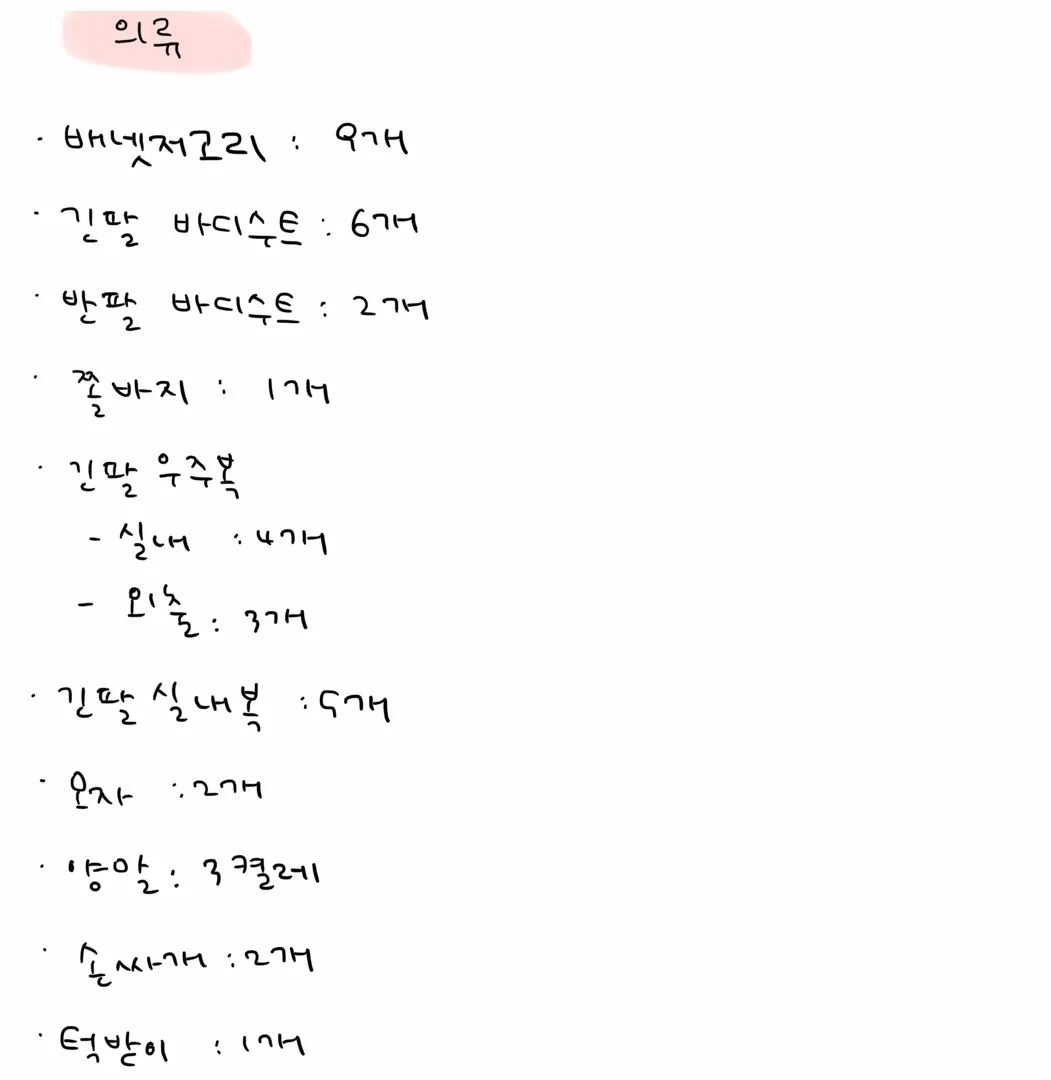 의류
· 배넷저고리 : 9개
· 긴팔 바디수트 : 6개
· 반팔 바디수트 : 2개
· 쫄바지 : 1개
· 긴팔 우주복
- 실내 : 4개
- 외출 : 3개
· 긴팔 실내복 : 5개
· 모자 : 2개
· 양말 : 3켤레
· 손싸개 : 2개
· 턱받이 : 1개